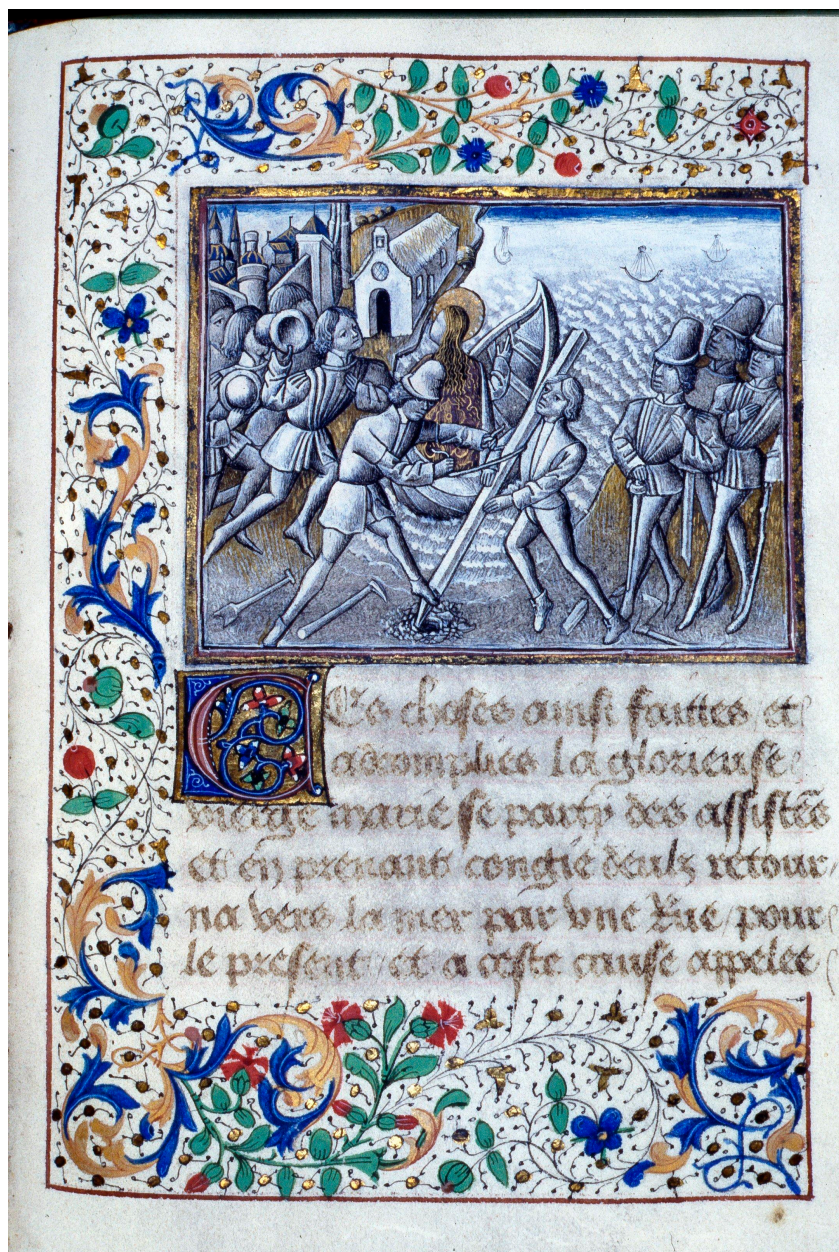 Ces choses ainsi faittes et
accomplies la glorieuse
vierge marie se party des assistẽs
et en prenant congie deulz retour/
na vers la mer par vne Rue / pour
le present / et a ceste cause appelee